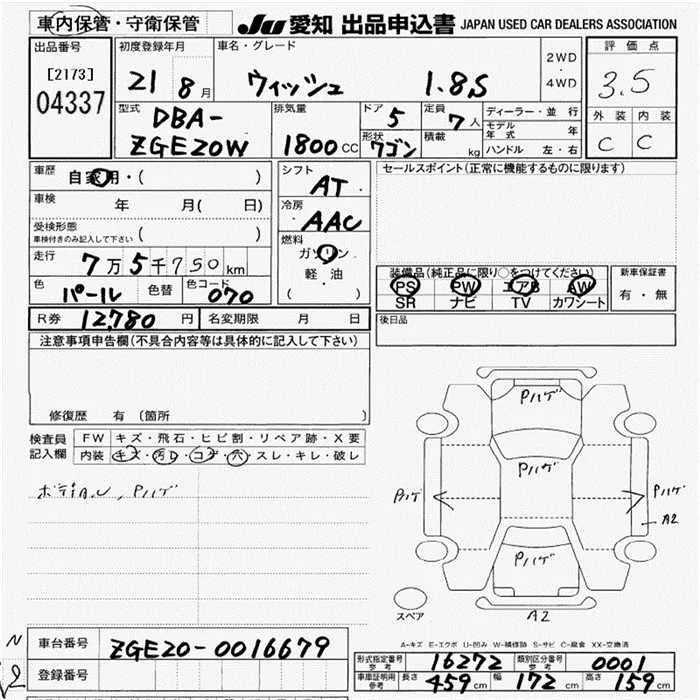 車内保管・守衛保管
JU 愛知 出品申込書 JAPAN USED CAR DEALERS ASSOCIATION
出品番号
[2173]
04337
初度登録年月
21 8月
車名・グレード
ウィッシュ 1.8S
2WD
4WD
評価点
3.5
外装 内装
C C
型式
DBA-
ZGE20W
排気量
1800 CC
ドア 5
形状 ワゴン
定員 7人
積載 kg
ディーラー・並行
モデル年式 年
ハンドル 左・右
車歴 自家用・( )
車検 年 月( 日)
受検形態
車検付きのみ記入して下さい ( )
走行 7万5千750km
色 パール 色替 色コード 070
シフト
AT
冷房
AAC
燃料
ガソリン
軽・油
( )
セールスポイント(正常に機能するものに限ります)
装備品(純正品に限り○をつけてください)
PS PW エアB AW
SR ナビ TV カワシート
新車保証書
有・無
R券 12,780 円 名変期限 月 日
後日品
注意事項申告欄(不具合内容等は具体的に記入して下さい)
修復歴 有 (箇所 )
検査員記入欄
FW キズ・飛石・ヒビ割・リペア跡・X要
内装 キズ・汚レ・コゲ・穴・スレ・キレ・破レ
Pハゲ
Pハゲ
Pハゲ
Pハゲ
Pハゲ
A2
A2
スペア
A-キズ E-エクボ U-凹み W-補修跡 S-サビ C-腐食 XX-交換済
車台番号 ZGE20-0016679
登録番号
形式指定番号 参考 16272 類別区分番号 参考 0001
車庫証明用 参考 長さ 459cm 幅 172cm 高さ 159cm